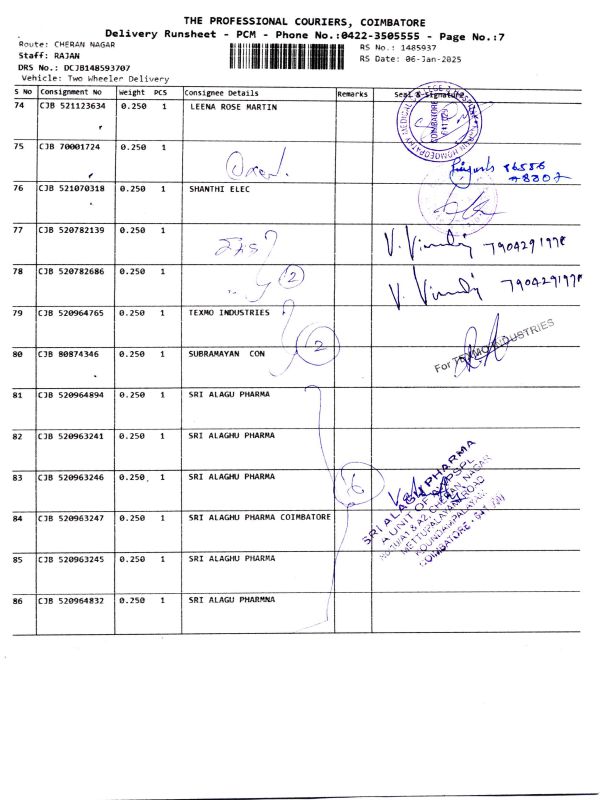 THE PROFESSIONAL COURIERS, COIMBATORE
Delivery Runsheet - PCM - Phone No.:0422-3505555 - Page No.:7
Route: CHERAN NAGAR
RS No.: 1485937
Staff: RAJAN
RS Date: 06-Jan-2025
DRS No.: DCJB148593707
Vehicle: Two Wheeler Delivery
S No Consignment No Weight PCS Consignee Details Remarks Seal & Signature
74 CJB 521123634 0.250 1 LEENA ROSE MARTIN
75 CJB 70001724 0.250 1
76 CJB 521070318 0.250 1 SHANTHI ELEC
77 CJB 520782139 0.250 1 7904291978
78 CJB 520782686 0.250 1 2 7904291978
79 CJB 520964765 0.250 1 TEXMO INDUSTRIES
2
For TEXMO INDUSTRIES
80 CJB 80874346 0.250 1 SUBRAMAYAN CON
81 CJB 520964894 0.250 1 SRI ALAGU PHARMA
82 CJB 520963241 0.250 1 SRI ALAGHU PHARMA
83 CJB 520963246 0.250 1 SRI ALAGHU PHARMA
6
SRI ALAGU PHARMA
84 CJB 520963247 0.250 1 SRI ALAGHU PHARMA COIMBATORE
85 CJB 520963245 0.250 1 SRI ALAGHU PHARMA
86 CJB 520964832 0.250 1 SRI ALAGU PHARMNA